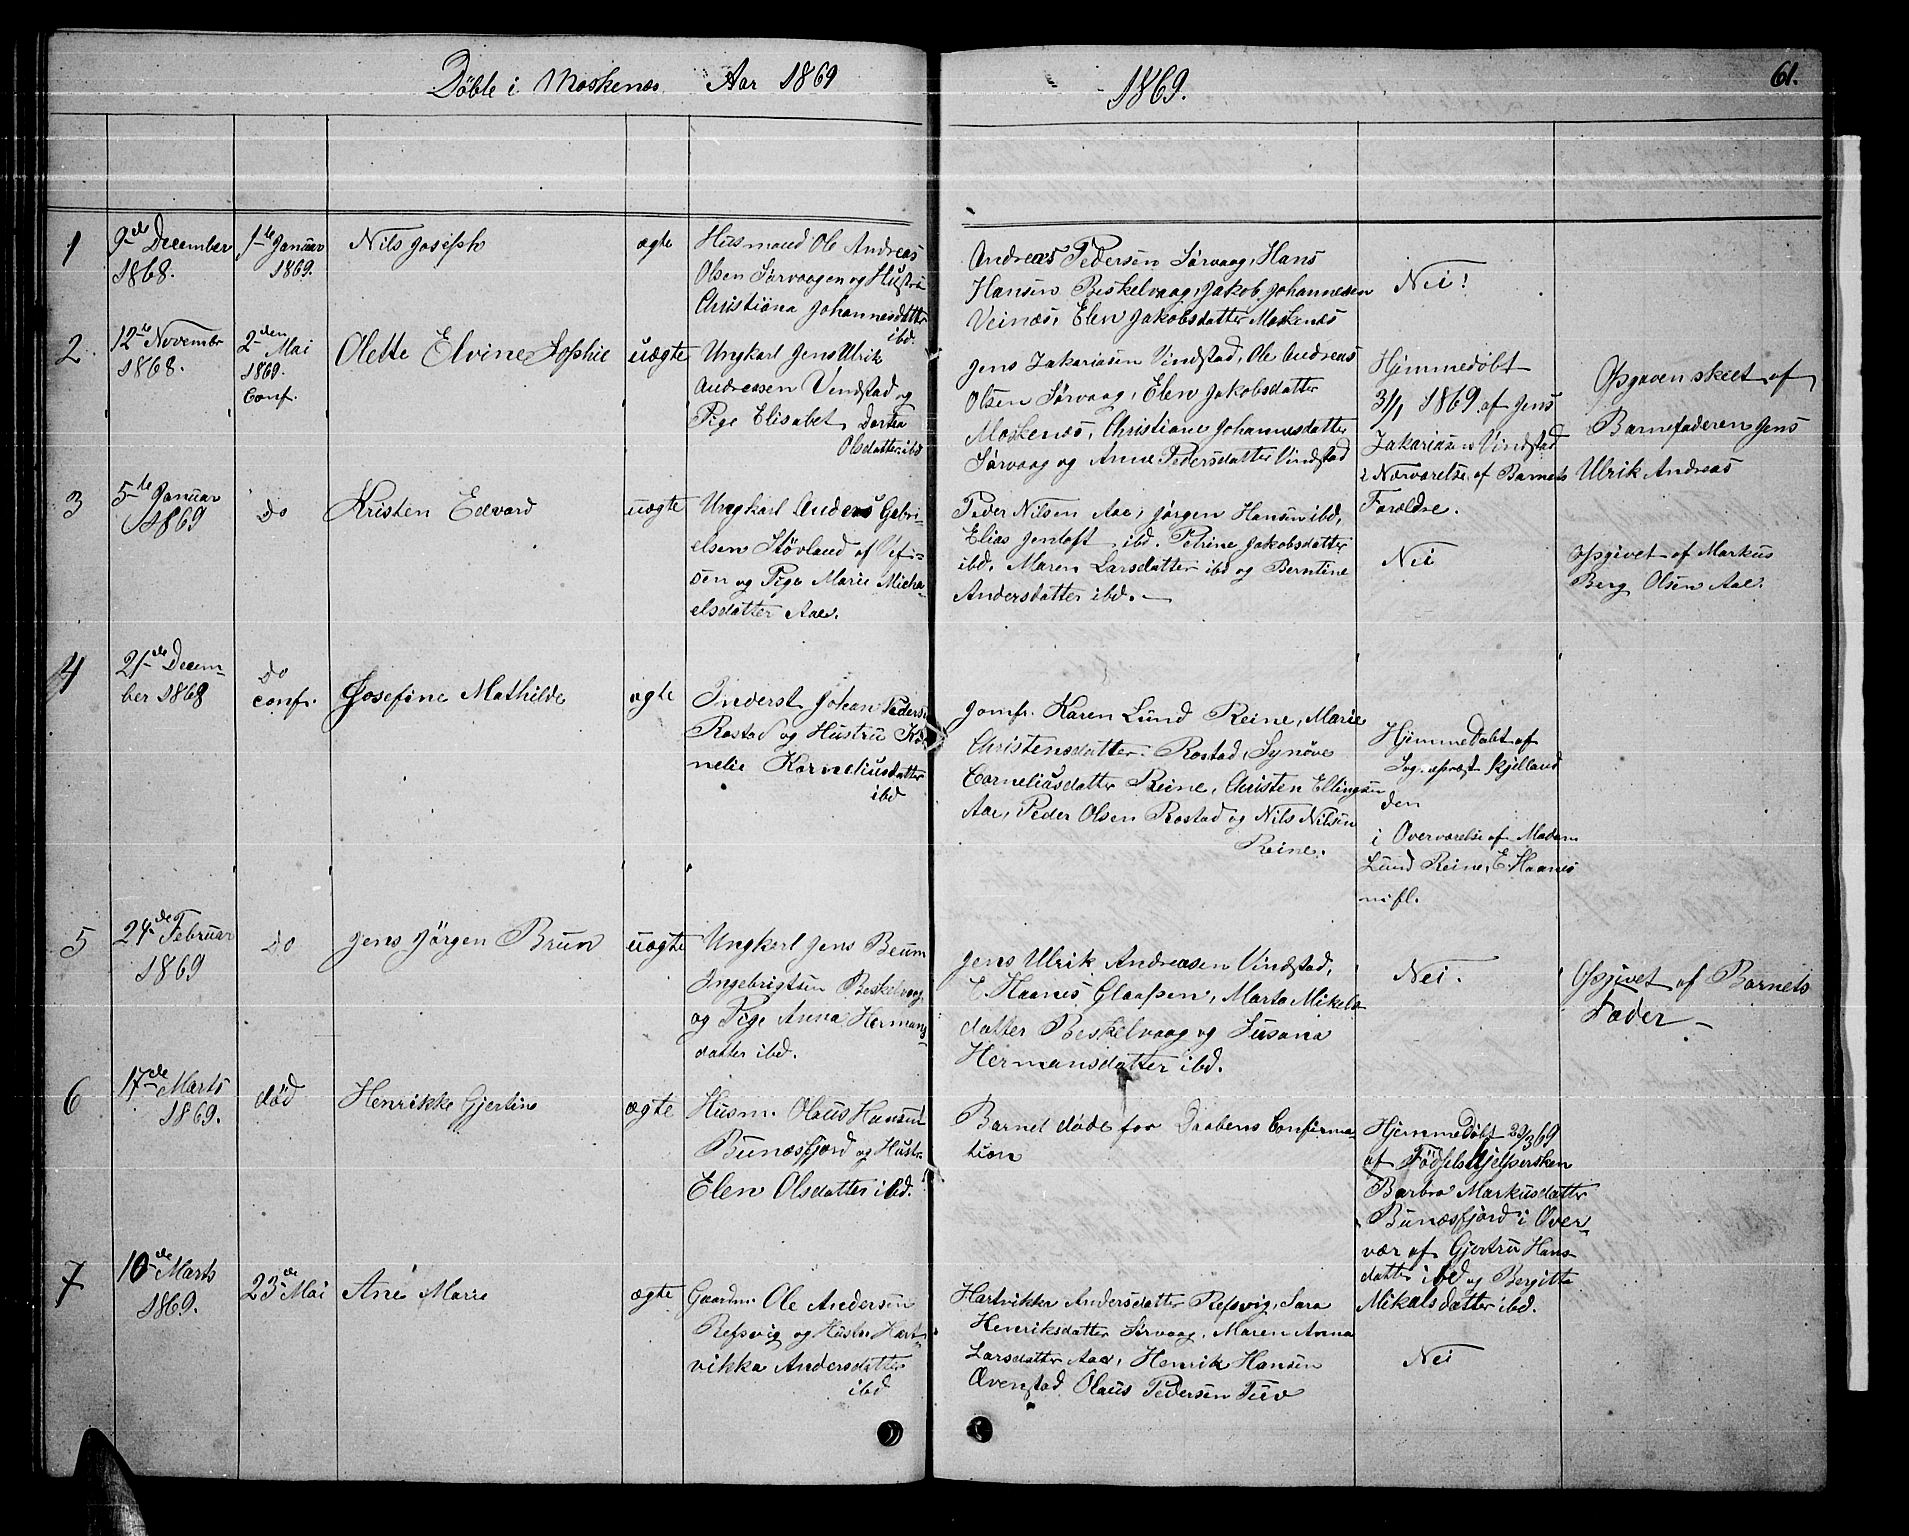 Döbte i Moskenes Aar 1869
1869.
61.
1
9de December
1868.
1te Januar
1869.
Nils Joseph
ægte
Husmand Ole Andreas
Olsen Sørvaagen og Hustru
Christiana Johannesdatter
ibd.
Andreas Pedersen Sørvaag, Hans
Hansen Beskelvaag, Jakob Johannesen
Veines, Elen Jakobsdatter Moskenes
Nei!
2
12te Novembr
1868.
2den Mai
1869.
Conf.
Olette Elvine Sophie
uægte
Ungkarl Jens Ulrik
Andreasen Vindstad og
Pige Elisabet Dortea
Olsdatter ibd
Jens Zakariasen Vindstad, Ole Andreas
Olsen Sørvaag, Elen Jakobsdatter
Moskenes, Christiane Johannesdatter
Sørvaag og Anne Pedersdatter Vindstad
Hjemmedøbt
3/1 1869 af Jens
Zakariasen Vindstad
i Nærværelse af Barnets
Forældre.
Opgaven skeet af
Barnefaderen Jens
Ulrik Andreas
3
5te Januar
1869
Do
Kristen Edvard
uægte
Ungkarl Anders Gabri-
elsen Støvland af Vefs-
sen og Pige Marie Micha-
elsdatter Aae.
Peder Nilsen Aae, Jørgen Hansen ibd,
Elias Jentoft ibd. Petrine Jakobsdatter
ibd, Maren Larsdatter ibd og Berntine
Andersdatter ibd.
Nei
Opgivet af Markus
Berg Olsen Aae.
4
21de Decem-
ber 1868
Do
conf.
Josefine Mathilde
ægte
Inderst Johan Peders
Rostad og Hustru Kor
nelie Korneliusdatter
ibd
Jomfr. Karen Lund Reine, Marie
Christensdatter Rostad, Synøve
Corneliusdatter Reine, Christen Ellingsen
Aae, Peder Olsen Rostad og Nils Nilsen
Reine.
Hjemmedøbt af
Sognepræst Kjelland
den
i Overværelse af Madam
Lund Reine, E. Haanes
m fl.
5
24de Februar
1869
Do
Jens Jørgen Brun
uægte
Ungkarl Jens Beum
Ingebrigtsen Beskelvaag
og Pige Anna Hermans-
datter ibd.
Jens Ulrik Andreasen Vindstad,
E. Haanes Glaapen, Marta Mikels
datter Beskelvaag og Susana
Hermansdatter ibd.
Nei.
Opgivet af Barnets
Fader
6
17de Marts
1869.
død
Henrikke Gjertine
ægte
Husm. Olaus Hansen
Bunæsfjord og Hustr
Elen Olsdatter ibd.
Barnet døde for Daabens Confirma-
tion
Hjemmedøbt 23/3 69
af Fødselshjelpersken
Barbro Markusdatter
Bunæsfjord i Over-
vær af Gjertru Hans-
datter ibd og Bergitta
Mikalsdatter ibd.
7
10de Marts
1869.
23de Mai
Ane Marie
ægte
Gaardm. Ole Andersen
Refsvig og Hustru Hart-
vikka Andersdatter
ibd
Hartvikka Andersdatter Refsvig, Sara
Henriksdatter Sørvaag, Maren Anna
Larsdatter Aae, Henrik Hansen
Ævenstad Olaus Pedersen Tuv
Nei